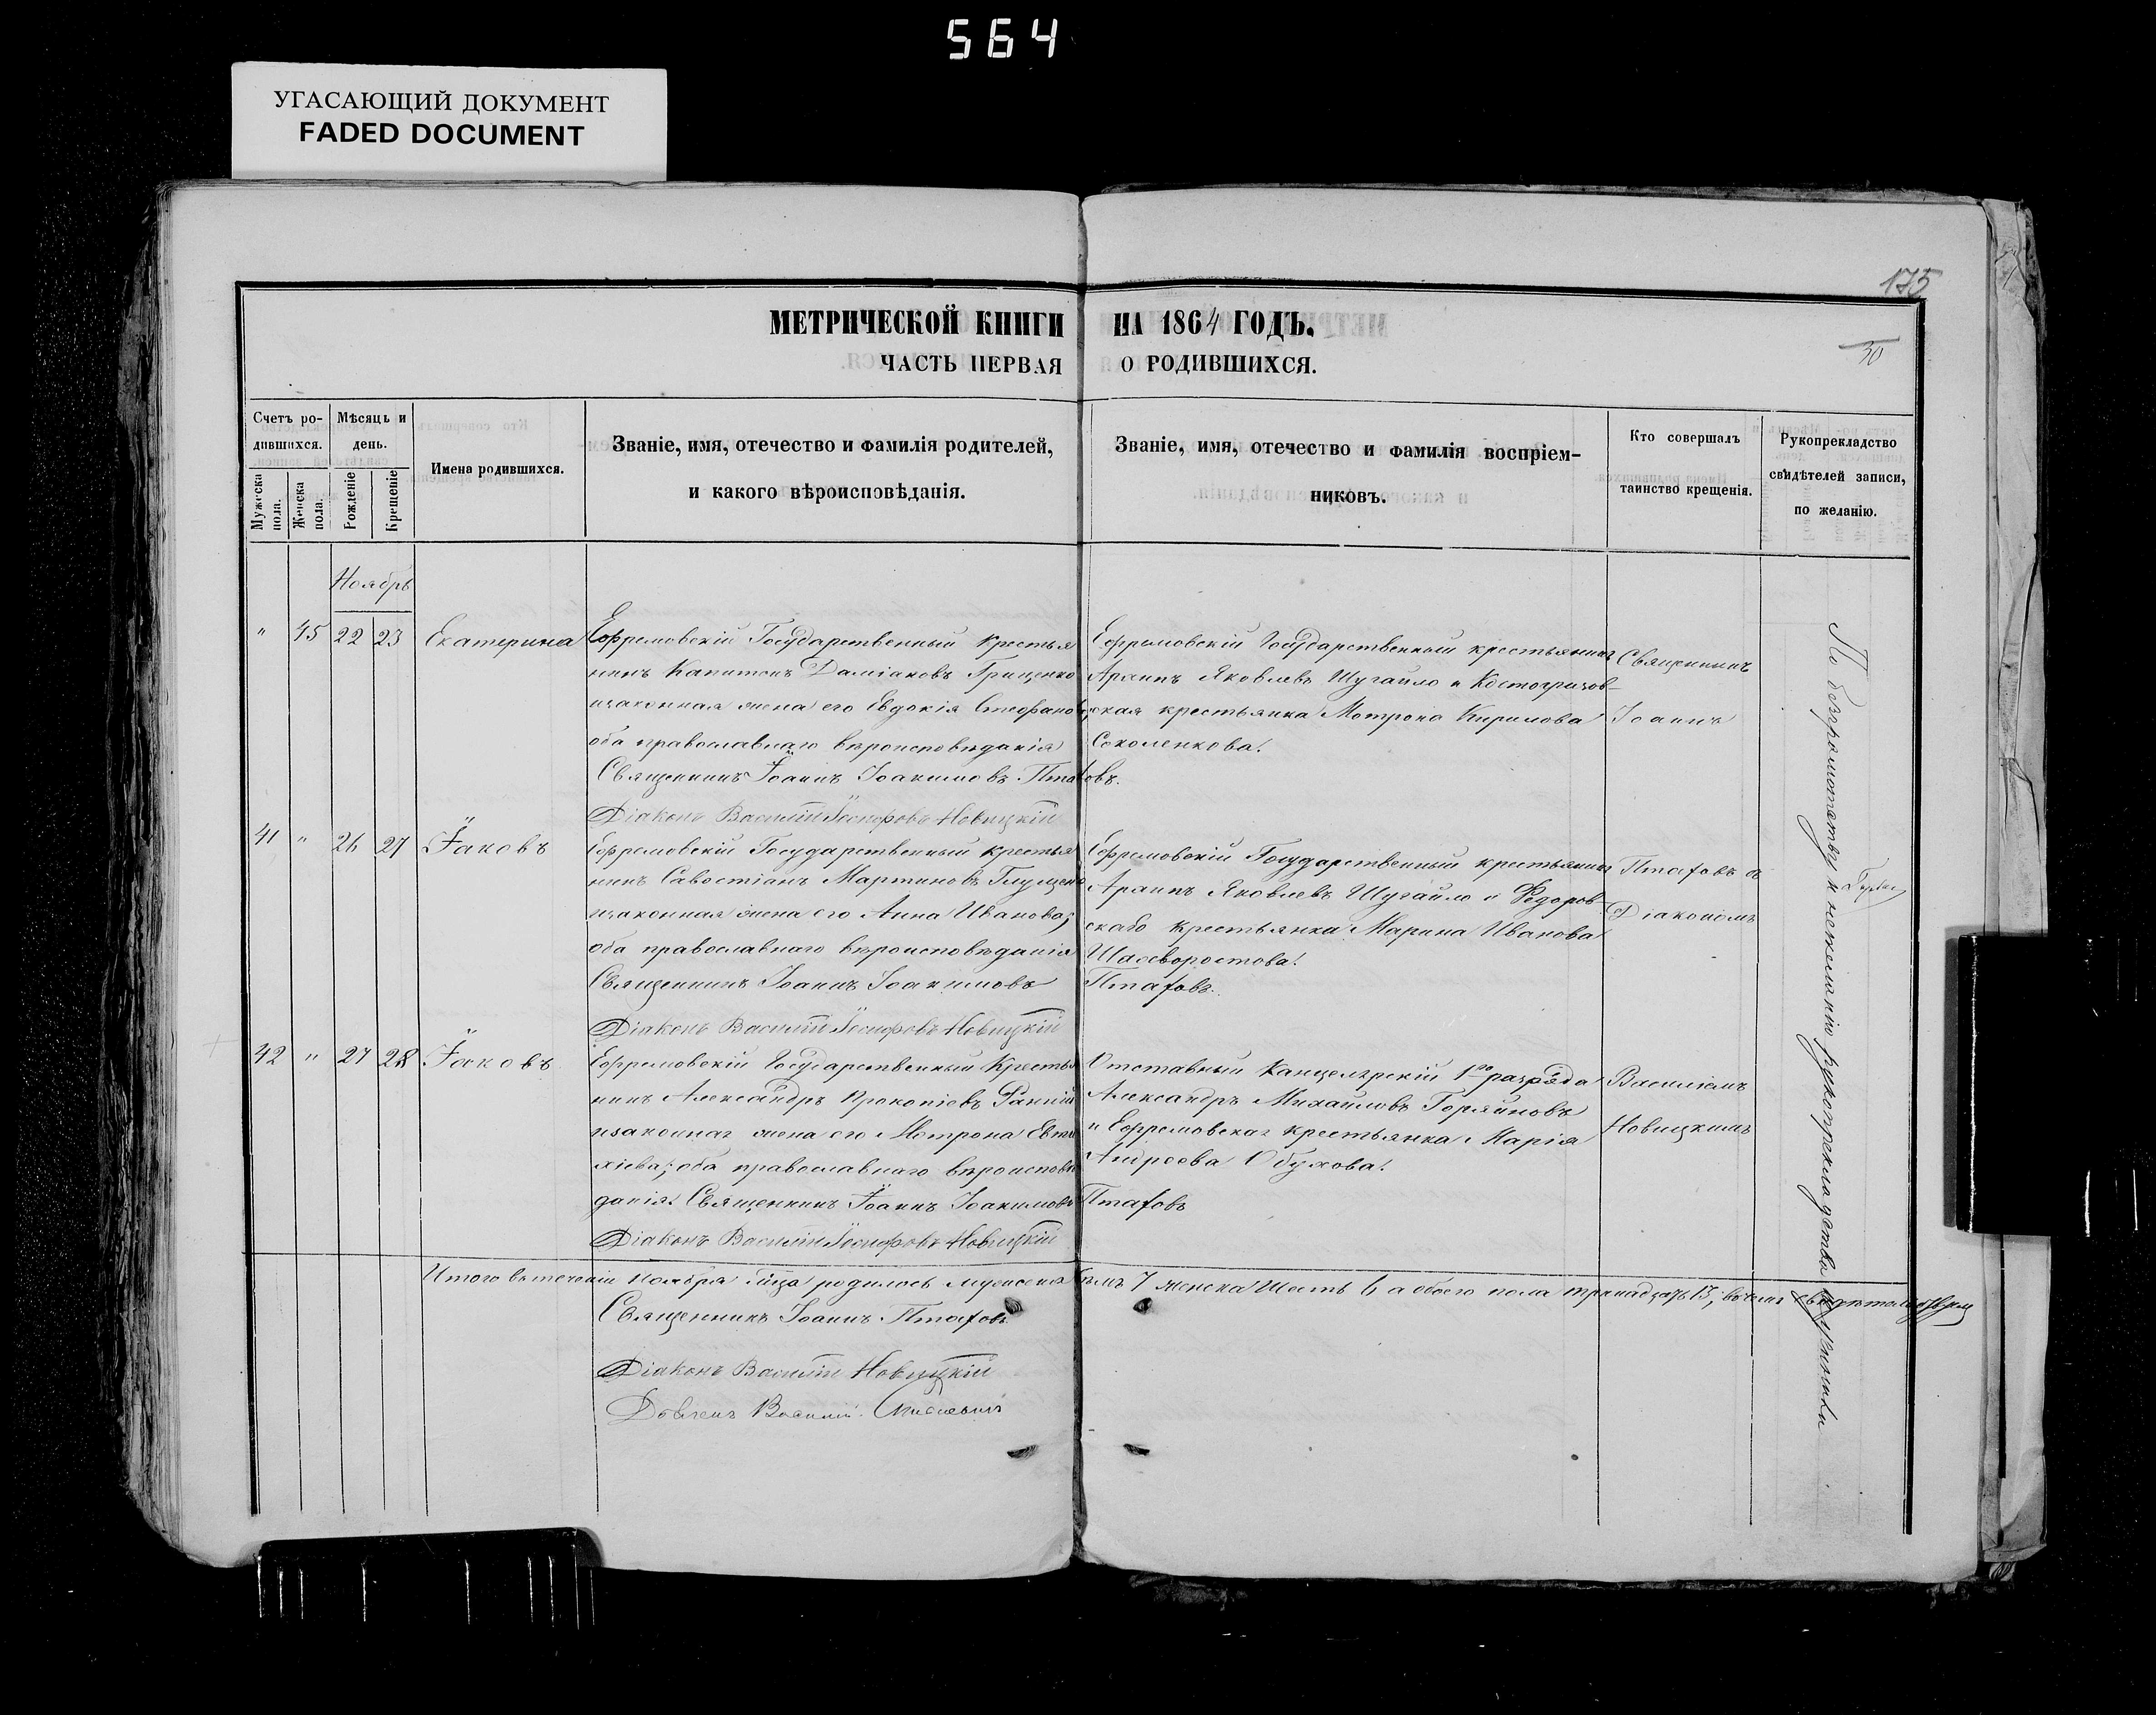 564
УГАСАЮЩИЙ ДОКУМЕНТ
FADED DOCUMENT
175
МЕТРИЧЕСКОЙ КНИГИ НА 1864 ГОДЪ.
30
ЧАСТЬ ПЕРВАЯ О РОДИВШИХСЯ.
Счетъ ро-
дившихся.
Мужеска пола.
Женска пола.
Мѣсяцъ и
день.
Рожденіе
Крещеніе
Имена родившихся.
Званіе, имя, отечество и фамилія родителей,
и какого вѣроисповѣданія.
Званіе, имя, отечество и фамилія воспріем-
никовъ.
Кто совершалъ
таинство крещенія.
Рукоприкладство
свидѣтелей записи,
по желанію.
Ноябрь
" 45 22 23 Екатерина
Ефремовскій Государственный крестья
нинъ Капитонъ Даміановъ Грищенко
изаконная жена его Евдокія Стефанов
оба православнаго вѣроисповѣданія
Священникъ Іоаннъ Іоакимовъ Птаховъ.
Діаконъ Василій Іосифовъ Новицкій
Ефремовскій Государственный крестьянинъ
Архипъ Яковлевъ Шугайло и Костогризов-
ская крестьянка Мотрона Кирилова
Соколенкова.
Священникъ
Іоаннъ
41 " 26 27 Іаковъ
Ефремовскій Государственный крестья
нинъ Савостіанъ Мартиновъ Глущенко
изаконная жена его Анна Иванова;
оба православнаго вѣроисповѣданія
Священникъ Іоаннъ Іоакимовъ Птаховъ.
Діаконъ Василій Іосифовъ Новицкій
Ефремовскій Государственный крестьянинъ
Архипъ Яковлевъ Шугайло и Федоров
крестьянка Марина Иванова
Птаховъ
Діакономъ
42 " 27 28 Іаковъ
Ефремовскій Государственный Крестья
нинъ Александръ Прокопіевъ
изаконная жена его Мотрона Евти
хіева; оба православнаго вѣроисповѣ
данія. Священникъ Іоаннъ Іоакимовъ Птаховъ
Діаконъ Василій Іосифовъ Новицкій
Отставный Канцелярскій 1го разряда
Александръ Михайловъ Горяйновъ
и Ефремовская крестьянка Марія
Андреева Обухова.
Василіемъ
Новицкимъ
По безграмотству и нежеланію рукоприкладства
Итого втеченіи ноября мѣсца родилось мужеска 7 женска Шесть 6 а обоего пола тринадцать 13, вчемъ
Священникъ Іоаннъ Птаховъ
Діаконъ Василій Новицкій
Василій